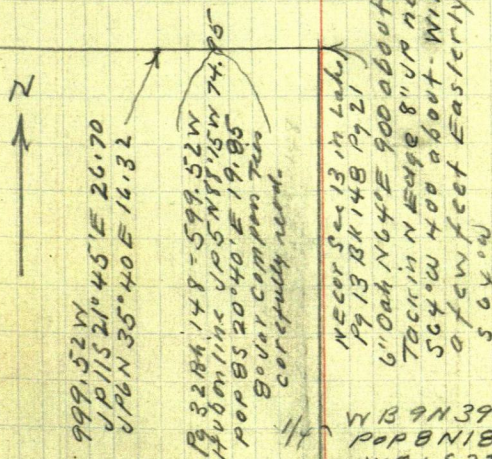 N
999.52 W
JP11S 21°45'E 26.70
JP6N 35°40 E 16.32
Pg 32 BK 148 - 599.52 W
Hub on line JP5 N88°15 W 74.95
POP 8S 20°40'E 19.85
8° var compass ties
carefully read.
NE Cor Sec 13 in Lake
Pg 13 BK 148 Pg 21
6" Oak N64°E 900 about
Tack in N Edge 8" JP
S64°W 400 about
a few feet Easterly
S 64°W
1/4
WB 9N 39
POP 8 N18